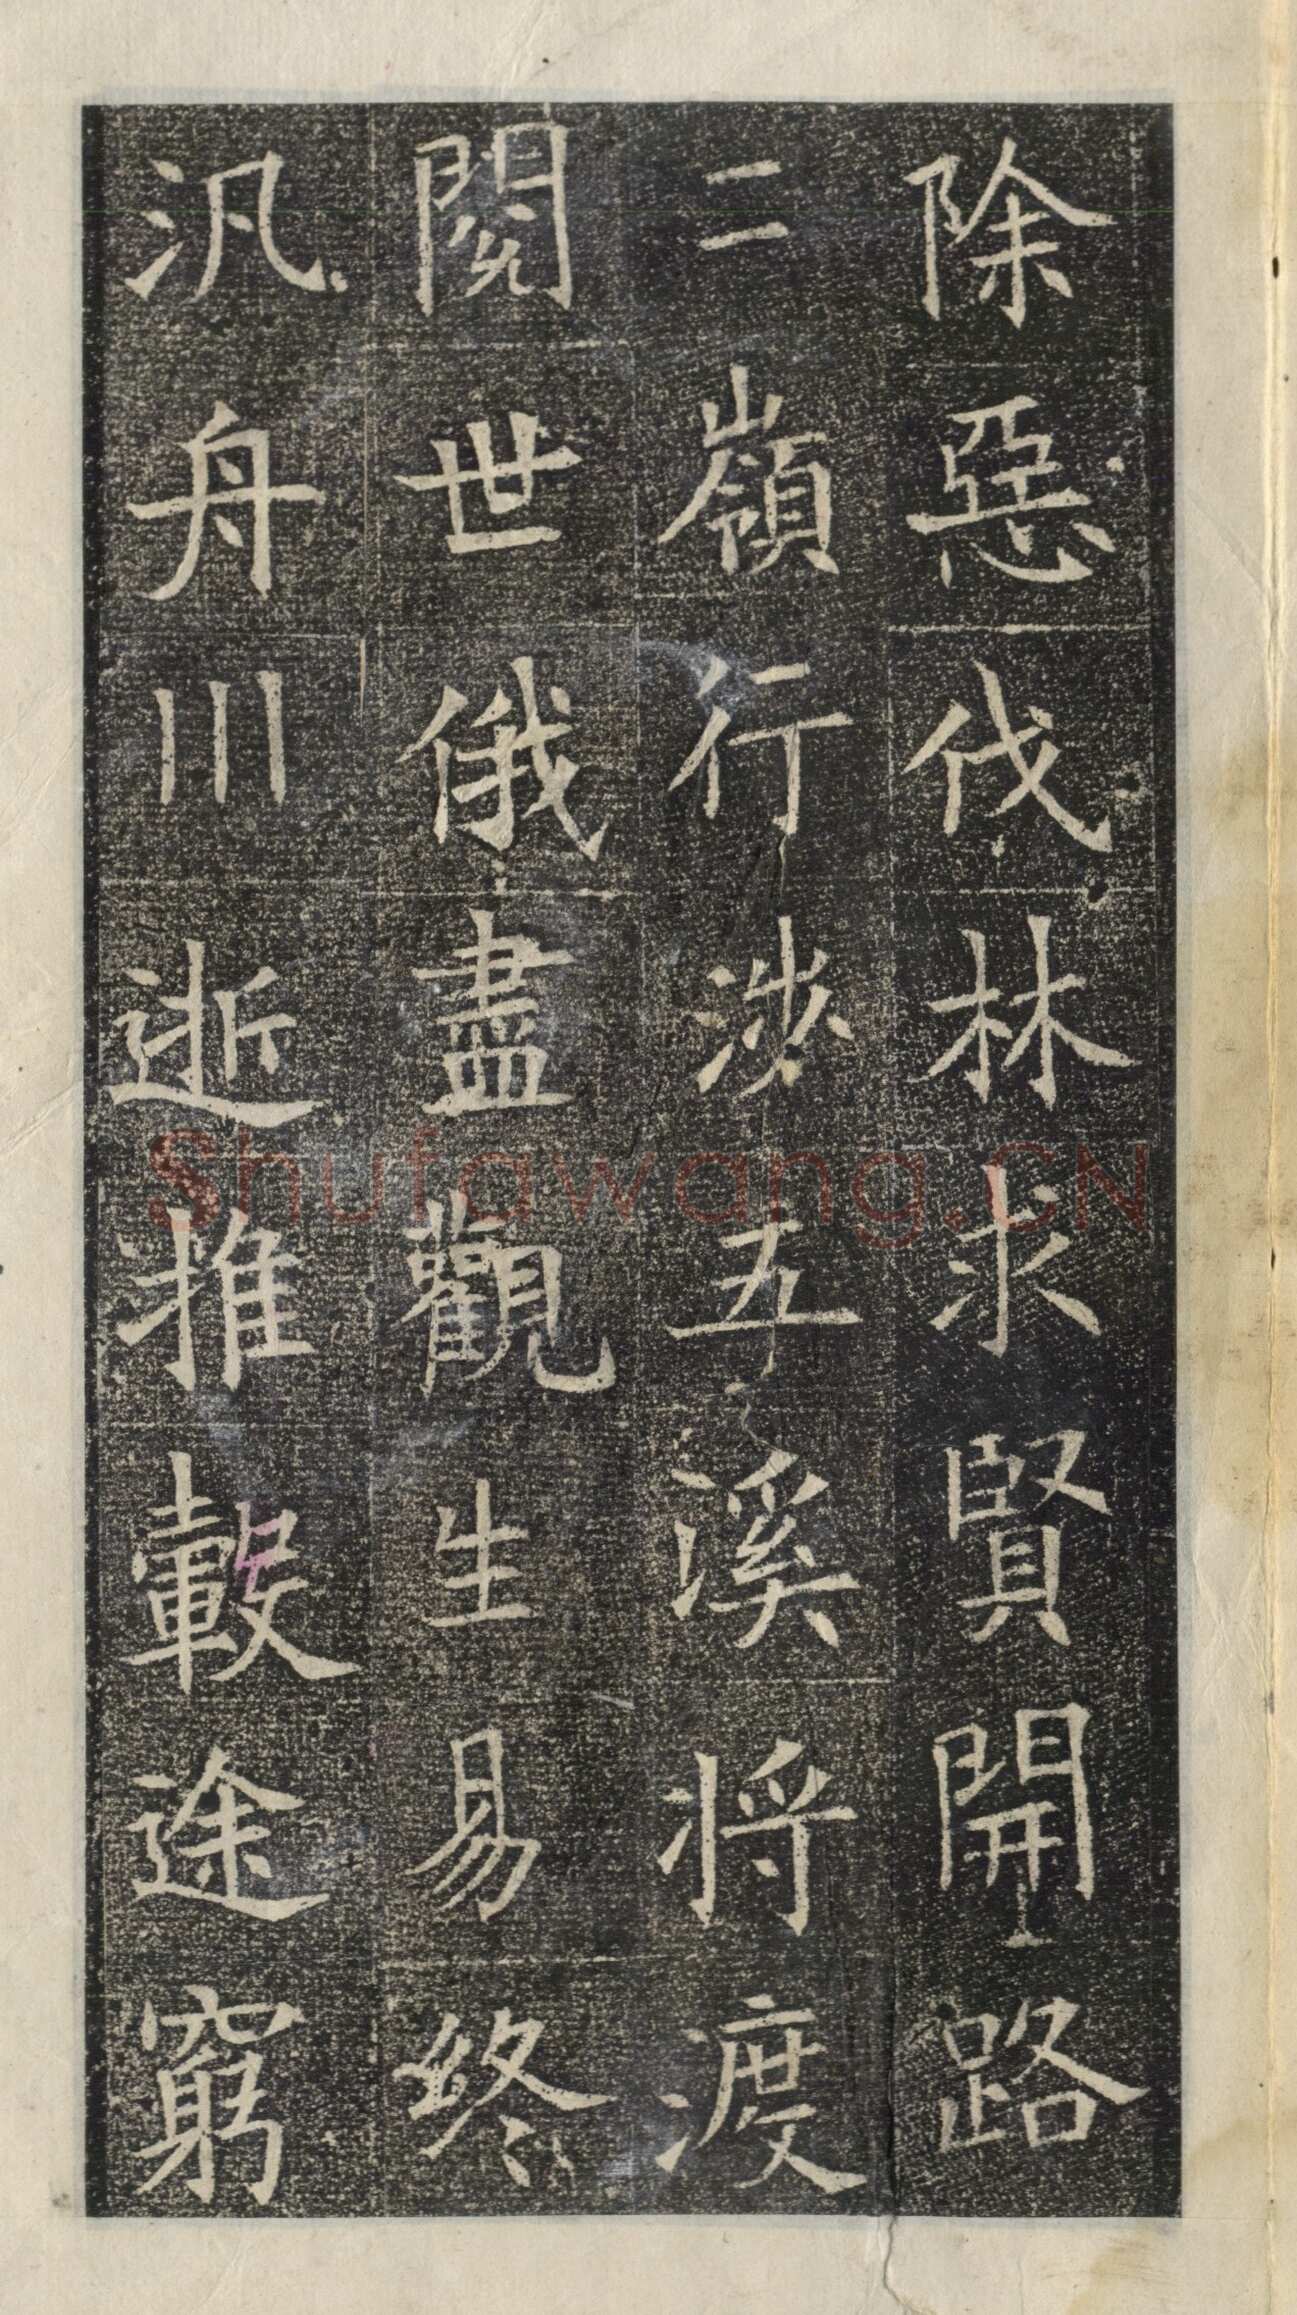 除惡伐林求賢開路
二嶺行涉五溪将渡
閱世俄盡觀生易終
汎舟川逝推轂途窮
Shufawang.CN